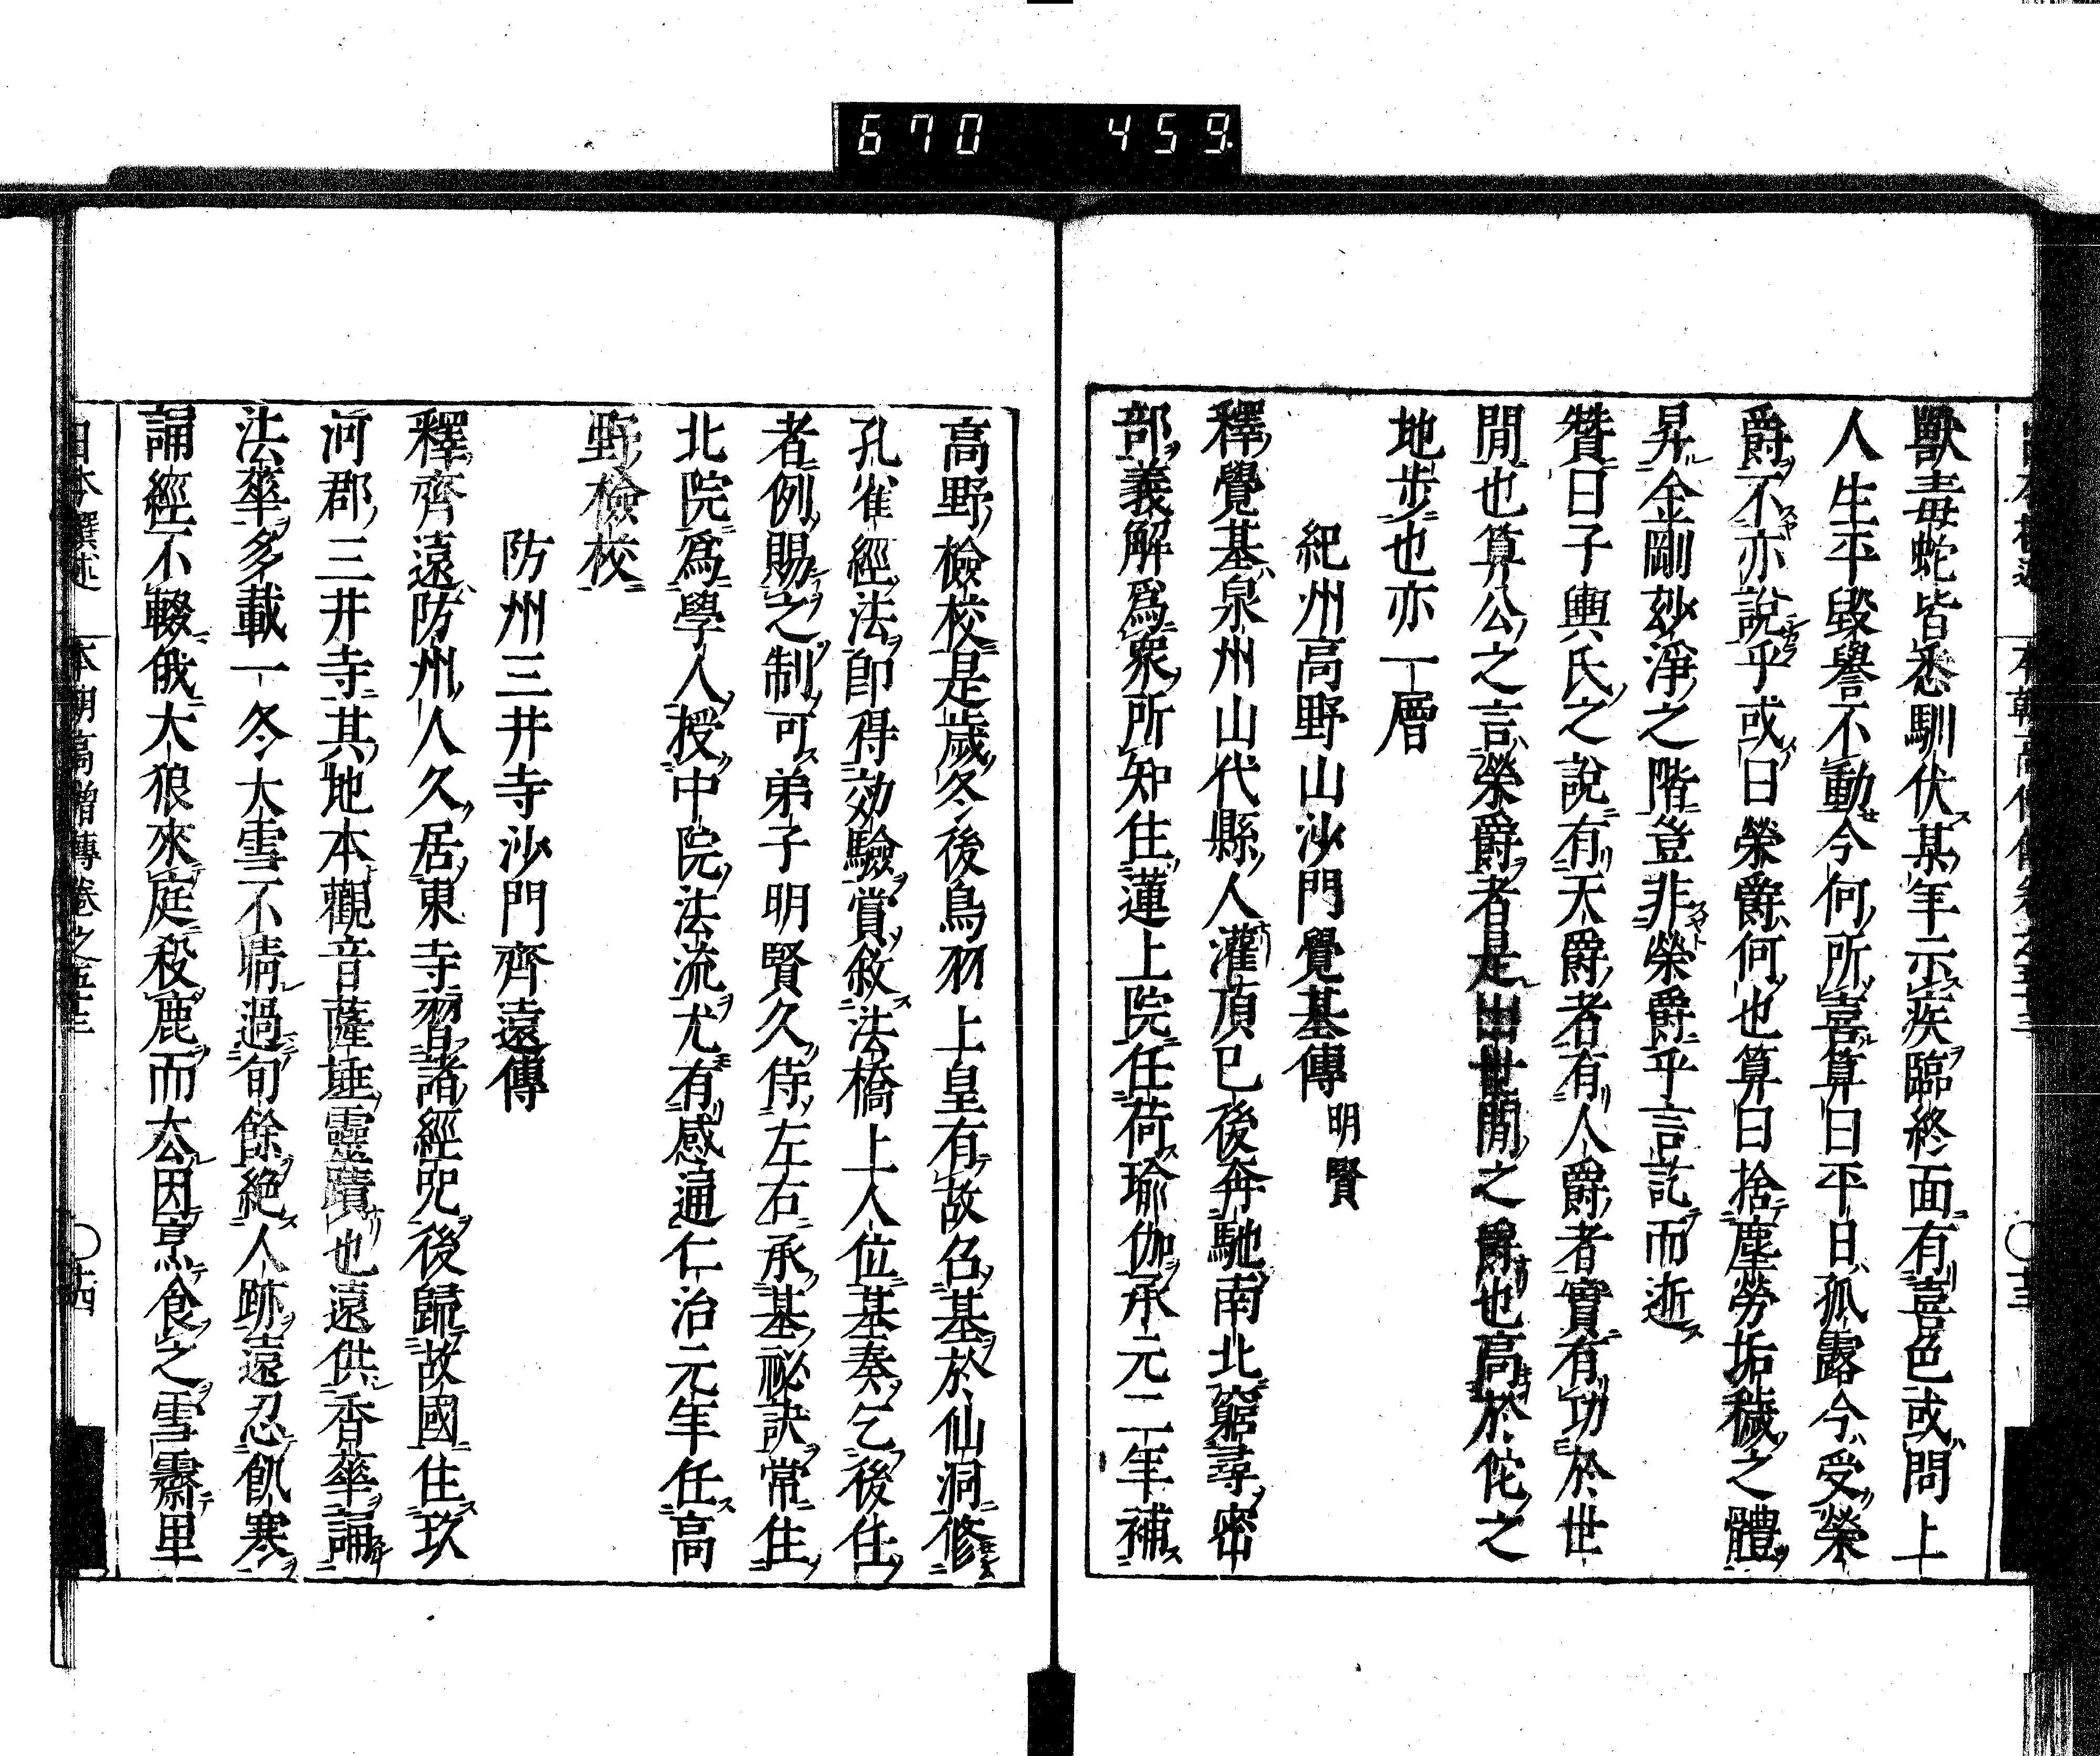 670 459
獸毒蛇皆悉馴伏某年示疾臨終面有喜色或問上
人生平毀譽不動今何所喜算曰平日孤露今受榮
爵不亦說乎或曰榮爵何也算曰捨塵勞垢穢之體
昇金剛玅淨之階豈非榮爵乎言訖而逝
贊曰子輿氏之說有天爵者有人爵者實有功於世
間也算公之言榮爵者是出世間之爵也高於佗之
地步也亦一層
紀州高野山沙門覺基傳 明賢
釋覺基泉州山代縣人灌頂已後奔馳南北窮尋密
部義解爲衆所知住蓮上院任荷瑜伽承元二年補
高野檢校是歲冬後鳥羽上皇有故召基於仙洞修
孔雀經法即得効驗賞敘法橋上人位基奏乞後住
者例賜之制可弟子明賢久侍左右承基祕訣常住
北院爲學人授中院法流尤有感通仁治元年任高
野檢校
防州三井寺沙門齊遠傳
釋齊遠防州人久居東寺習諸經咒後歸故國住玖
河郡三井寺其地本觀音薩埵靈蹟也遠供香華誦
法華多載一冬大雪不晴過旬餘絶人跡遠忍飢寒
誦經不輟俄大狼來庭殺鹿而去因烹食之雪霽里
本朝高僧傳卷之五十三